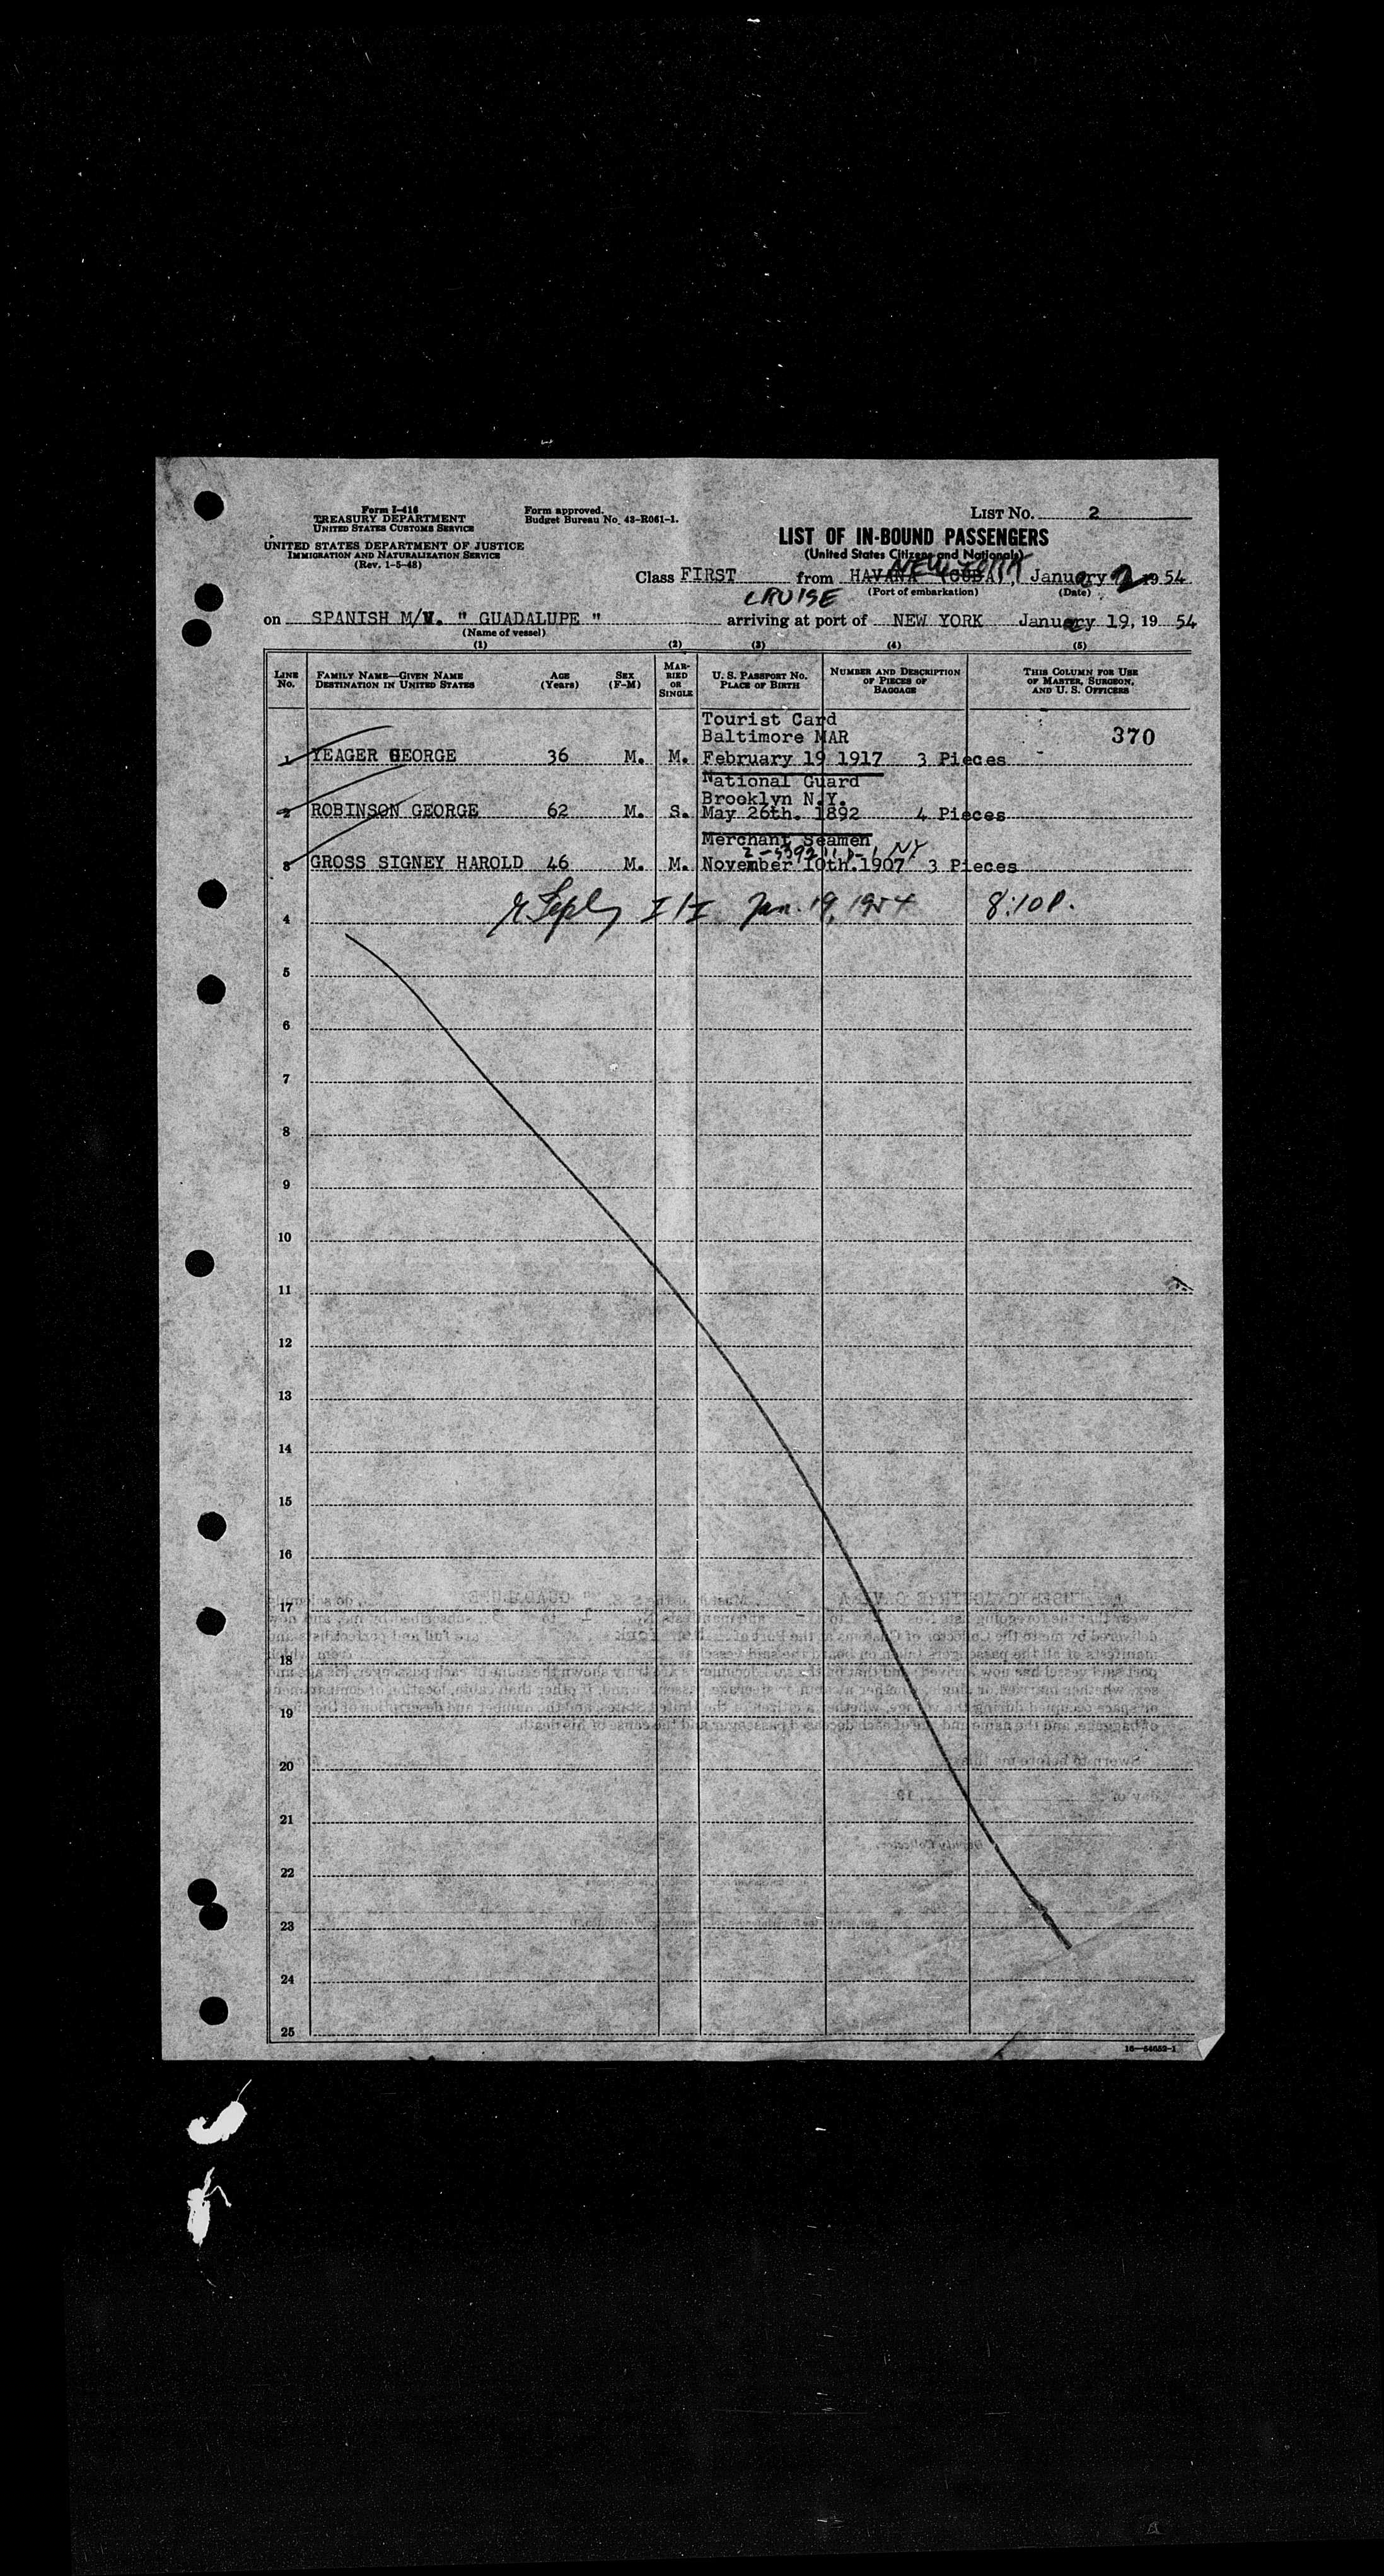 Form I-416
TREASURY DEPARTMENT
UNITED STATES CUSTOMS SERVICE
UNITED STATES DEPARTMENT OF JUSTICE
IMMIGRATION AND NATURALIZATION SERVICE
(Rev. 1-5-48)
Form approved.
Budget Bureau No. 43-R061-1.
LIST NO. 2
LIST OF IN-BOUND PASSENGERS
(United States Citizens and Nationals)
NEW YORK
Class FIRST from HAVANA (CUBA), January 2 1954
(Port of embarkation) (Date)
CRUISE
on SPANISH M/V. " GUADALUPE " arriving at port of NEW YORK January 19, 1954
(Name of vessel)
(1) (2) (3) (4) (5)
LINE NO. FAMILY NAME—GIVEN NAME DESTINATION IN UNITED STATES AGE (Years) SEX (F-M) MARRIED OR SINGLE U. S. PASSPORT NO. PLACE OF BIRTH NUMBER AND DESCRIPTION OF PIECES OF BAGGAGE THIS COLUMN FOR USE OF MASTER, SURGEON, AND U. S. OFFICERS
Tourist Card
Baltimore MAR 370
1 YEAGER GEORGE 36 M. M. February 19 1917 3 Pieces
National Guard
Brooklyn N.Y.
2 ROBINSON GEORGE 62 M. S. May 26th. 1892 4 Pieces
Merchant Seamen
NY
3 GROSS SIGNEY HAROLD 46 M. M. November 10th.1907 3 Pieces
4 Jan. 19, 1954 8:10P.
5
6
7
8
9
10
11
12
13
14
15
16
17
18
19
20
21
22
23
24
25